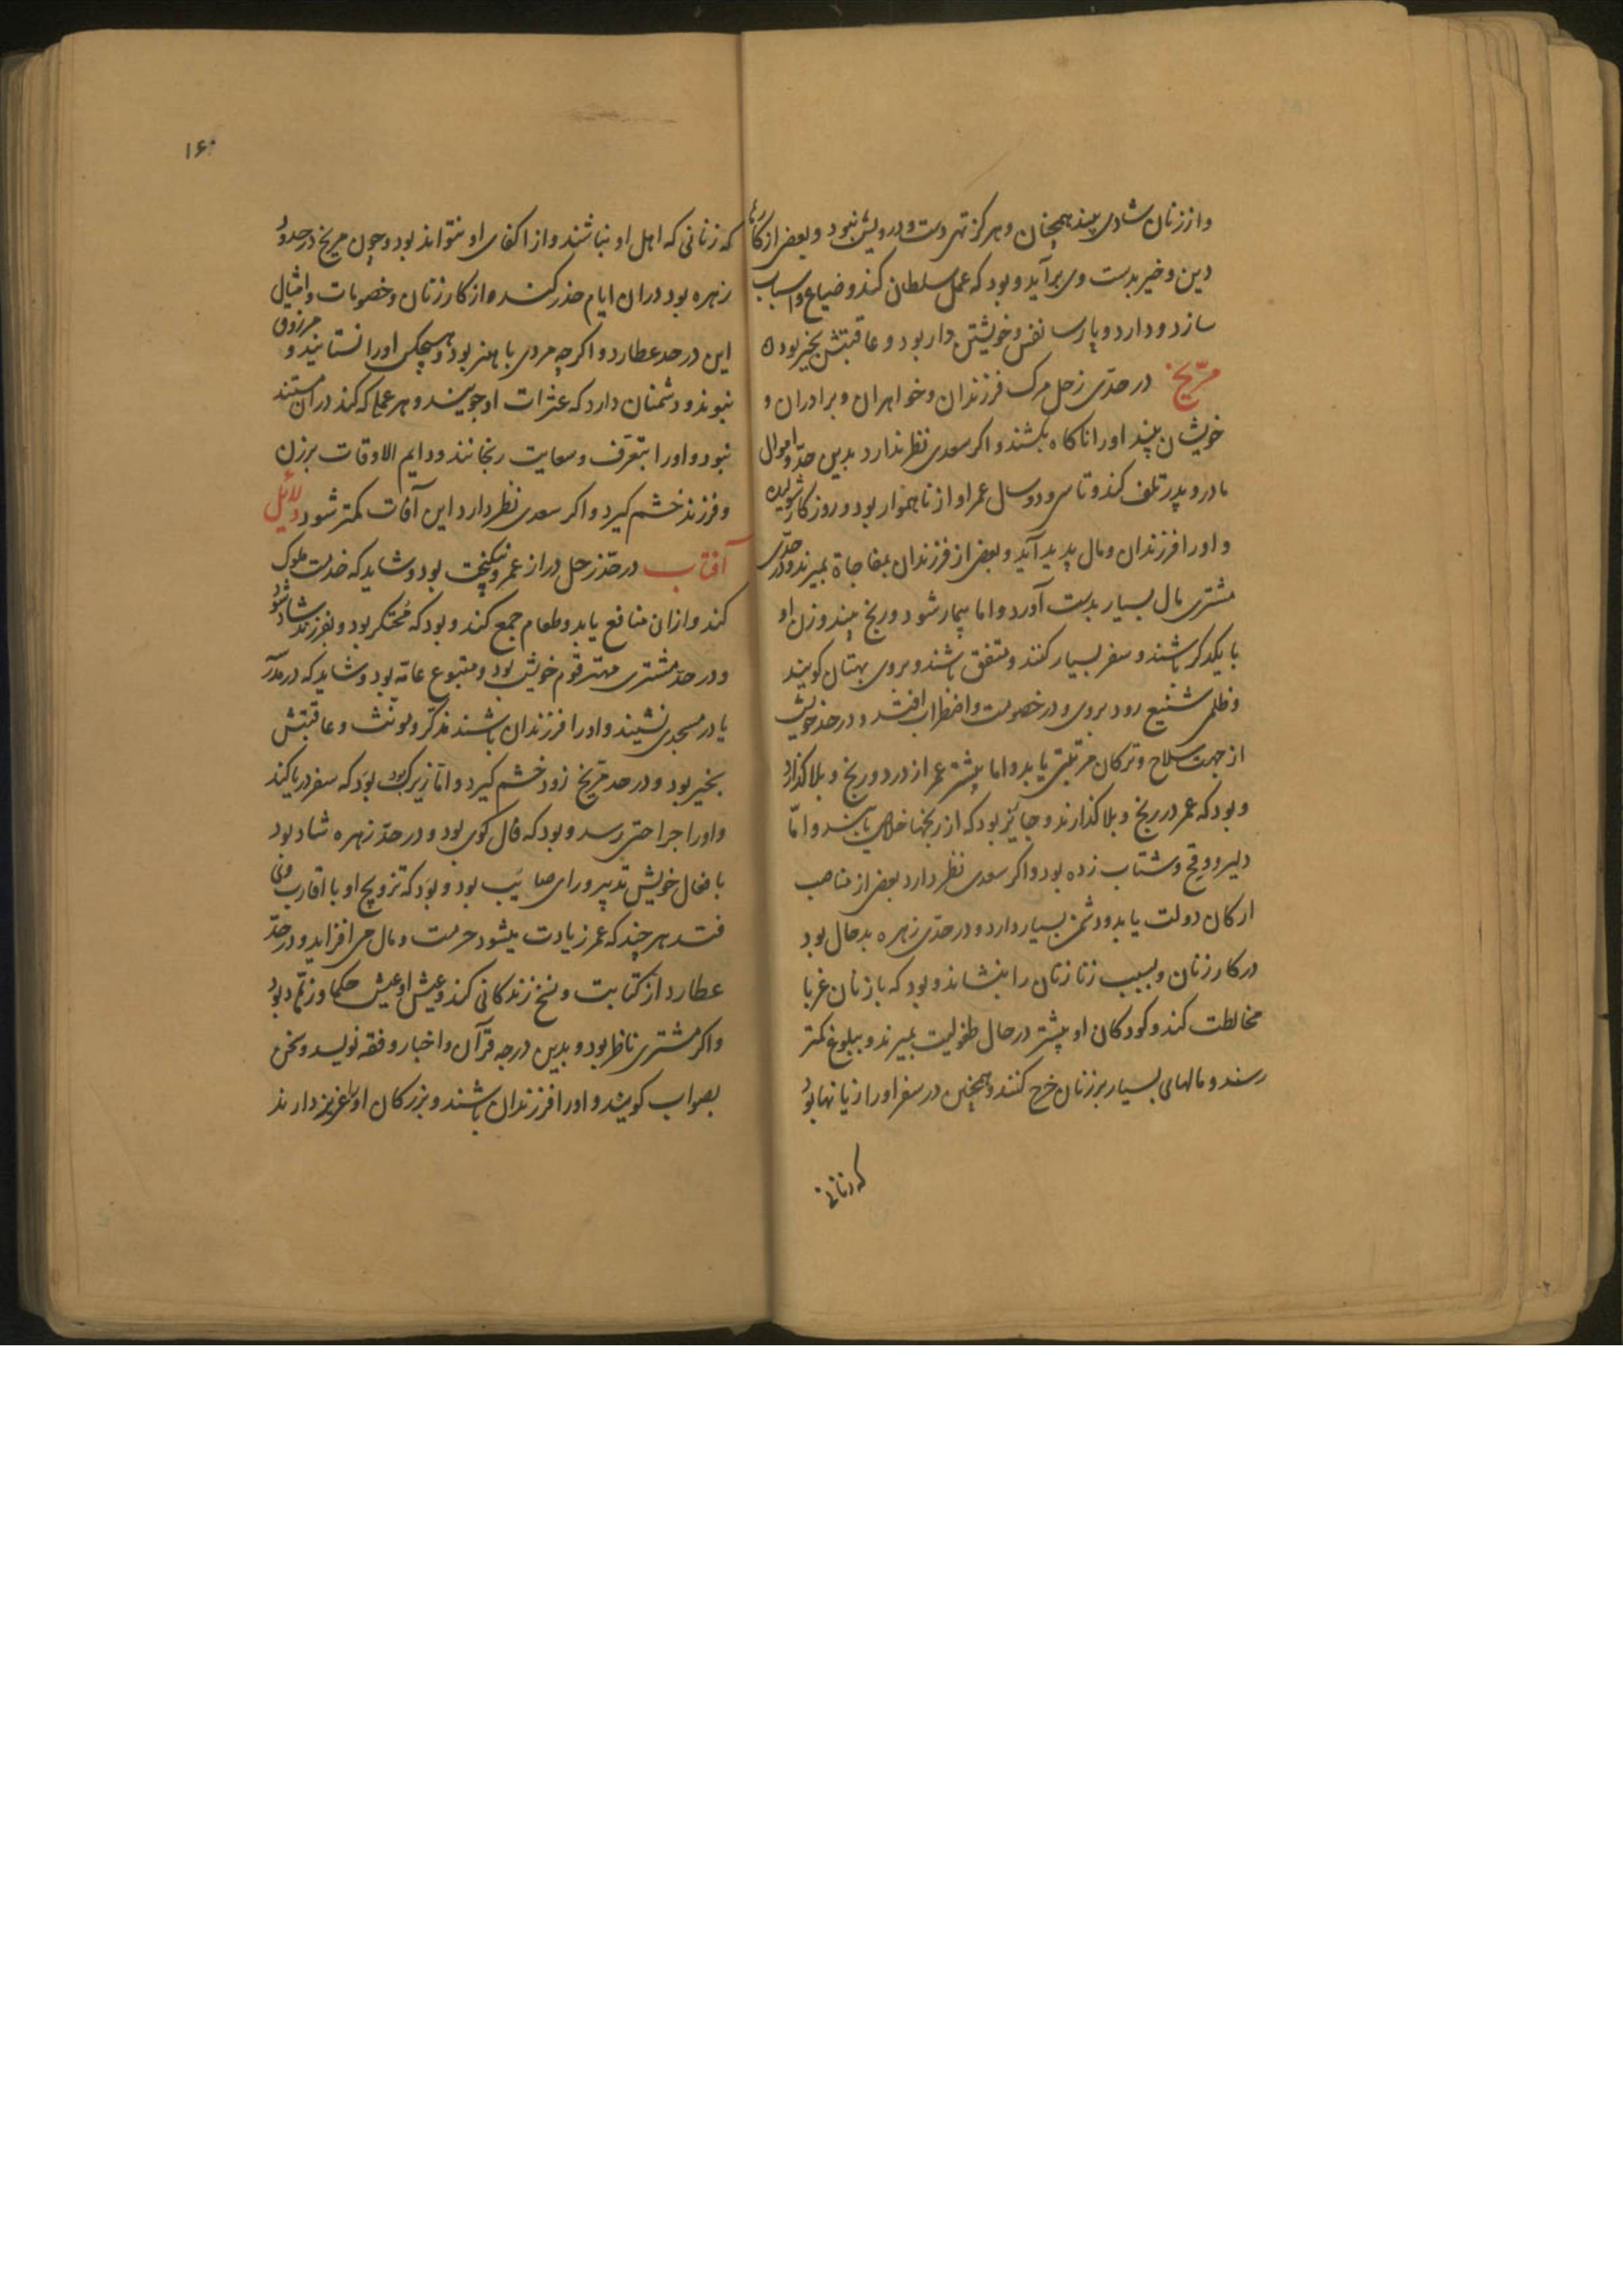 واززنان شادی بیند همچنان وهرکز تهی دست ودرویش نبود وبعضی ازکارها
دین وخیر بدست وی برآید وبود که عمل سلطان کند وضیاع واسباب
سازد ودارد وپارسا نفس وخویشتن دار بود وعاقبتش بخیر بود
مریخ درحدی زحل مرک فرزندان وخواهران وبرادران و
خویشان بیند اورا ناکاه بکشند واکر سعدی نظر ندارد بدین حد واموال
مادر وپدر تلف کند وتا سی ودو سال عمر او از ناهموار بود وروزکار شولیده
واورا فرزندان ومال پدید آید وبعضی از فرزندان بمفاجاة بمیرند ودر حدی
مشتری مال بسیار بدست آورد واما بیمار شود ورنج بیند وزن او
با یکدکر باشند وسفر بسیار کنند ومتفق باشند وبروی بهتان کویند
وظلمی شنیع رود بروی ودر خصومت واضطراب افتد ودر حد خویش
از جهت سلاح وترکان مرتبتی یابد واما بیشتر عمر از درد ورنج وبلا کذارد
وبود که عمر در رنج وبلا کذارند وجایز بود که از رنجها خلاص یابند واما
دلیر ووقح وشتاب زده بود واکر سعدی نظر دارد بعضی از مناصب
ارکان دولت یابد ودشمن بسیار دارد ودر حدی زهره بدحال بود
در کار زنان وبسبب زنا زنان را بنشاند وبود که با زنان غربا
مخالطت کند وکودکان او بیشتر در حال طفولیت بمیرند وببلوغ کمتر
رسند ومالهای بسیار بر زنان خرج کنند وهمچنین در سفر اورا زیانها بود
که زنانی
۱۶۰
که زنانی که اهل او نباشند واز اکفای او نتواند بود وچون مریخ در حدود
زهره بود دران ایام حذر کنند واز کار زنان وخصومات وامثال
این در حد عطارد واکرچه مردی با هنر بود وهیچکس اورا نستایند ومرزوق
نبود ودشمنان دارد که عثرات او جویند وهر عملی که کند دران مستند
نبود واورا بتعرف وسعایت رنجانند ودایم الاوقات برزن
وفرزند خشم کیرد واکر سعدی نظر دارد این آفات کمتر شود دلائل
آفتاب در حد زحل دراز عمر ونیکبخت بود وشاید که خدمت ملوک
کند وازان منافع یابد وطعام جمع کند وبود که محتکر بود وبفرزند شاد شود
ودر حد مشتری مهتر قوم خویش بود ومتبوع عامه بود وشاید که در مدرسه
یا در مسجدی نشیند واورا فرزندان باشند مذکر ومونث وعاقبتش
بخیر بود ودر حد مریخ زود خشم کیرد واما زیرک بود بود که سفر دریا کند
واورا جراحتی رسد وبود که فال کوی بود ودر حد زهره شاد بود
بافعال خویش تدبیر ورای صایب بود وبود که تزویج او با اقارب وی
فتد هر چند که عمر زیادت میشود حرمت ومال می افزاید ودر حد
عطارد از کتابت ونسخ زندکانی کند وعیش او عیش حکما وزهاد بود
واکر مشتری ناظر بود وبدین درجه قرآن واخبار وفقه نویسد وسخن
بصواب کویند واورا فرزندان باشند وبزرکان اورا عزیز دارند